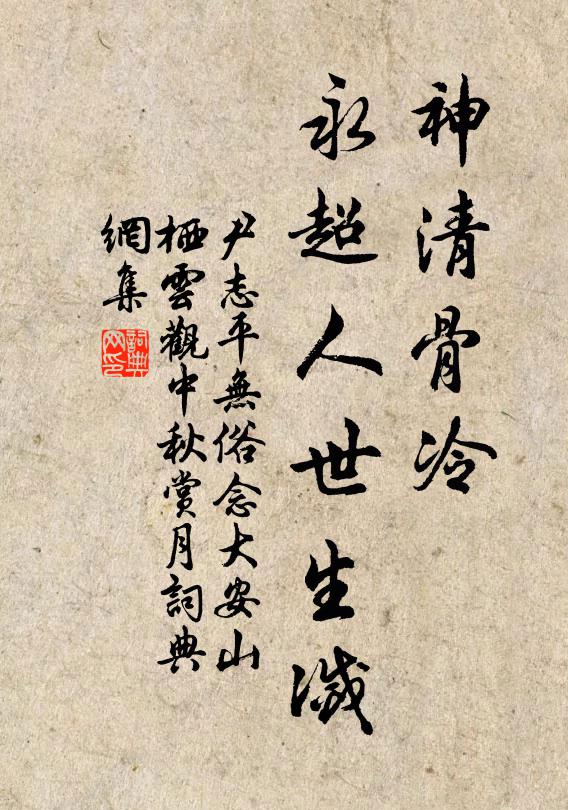 神清骨冷
永超人世生滅
尹志平無俗念大安山
栖雲觀中秋賞月詞典
網集
詞典
网印